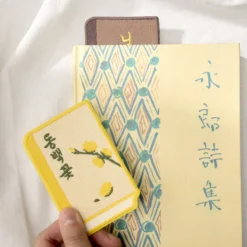 永郞詩集
동백꽃